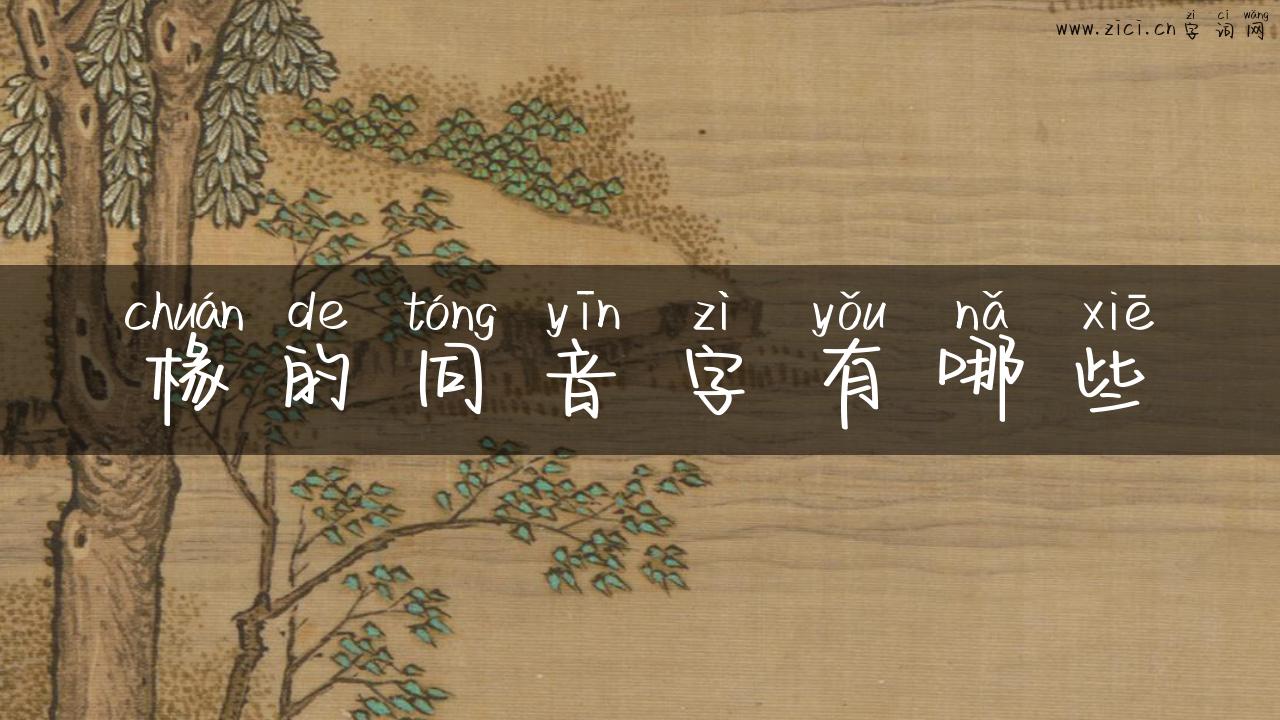 zì cí wǎng
www.zici.cn字词网
chuán de tóng yīn zì yǒu nǎ xiē
椽的同音字有哪些